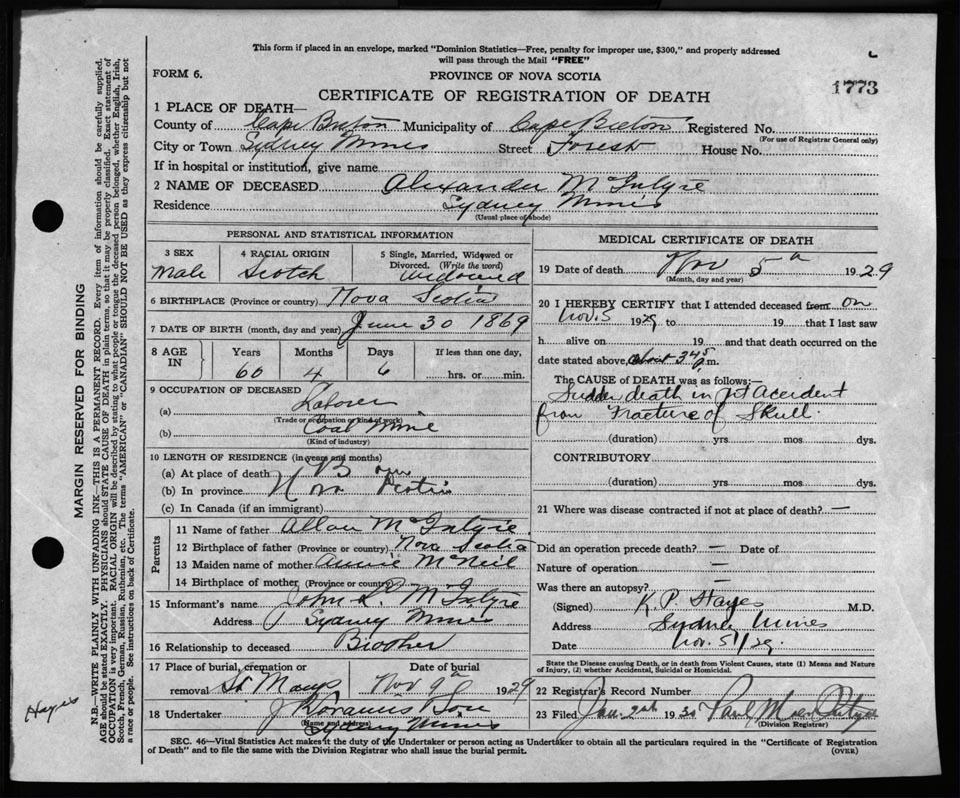 This form if placed in an envelope, marked "Dominion Statistics—Free, penalty for improper use, $300," and properly addressed
will pass through the Mail "FREE"
FORM 6.
PROVINCE OF NOVA SCOTIA
1773
CERTIFICATE OF REGISTRATION OF DEATH
1 PLACE OF DEATH—
County of Cape Breton Municipality of Cape Breton Registered No.
(For use of Registrar General only)
City or Town Sydney Mines Street Forest House No.
If in hospital or institution, give name
2 NAME OF DECEASED Alexander McIntyre
Residence Sydney Mines
(Usual place of abode)
PERSONAL AND STATISTICAL INFORMATION
3 SEX Male
4 RACIAL ORIGIN Scotch
5 Single, Married, Widowed or Divorced. (Write the word) Widowed
6 BIRTHPLACE (Province or country) Nova Scotia
7 DATE OF BIRTH (month, day and year) June 30 1869
8 AGE IN Years 60 Months 4 Days 6 If less than one day, hrs. or min.
9 OCCUPATION OF DECEASED
(a) Laborer
(Trade or occupation or kind of work)
(b) Coal Mine
(Kind of industry)
10 LENGTH OF RESIDENCE (in years and months)
(a) At place of death
(b) In province Nova Scotia
(c) In Canada (if an immigrant)
Parents
11 Name of father Allan McIntyre
12 Birthplace of father (Province or country) Nova Scotia
13 Maiden name of mother Annie McNeil
14 Birthplace of mother (Province or country)
15 Informant's name John McIntyre
Address Sydney Mines
16 Relationship to deceased Brother
17 Place of burial, cremation or removal St Marys Date of burial Nov 9th 1929
18 Undertaker
(Name and address)
Sydney Mines
MEDICAL CERTIFICATE OF DEATH
19 Date of death Nov 5th 1929
(Month, day and year)
20 I HEREBY CERTIFY that I attended deceased from on
Nov. 5 1929 to 19 that I last saw
h alive on 19 and that death occurred on
date stated above, about 3 45 p.m.
The CAUSE OF DEATH was as follows:
Sudden death in pit accident
from Fracture of Skull.
(duration) yrs mos dys.
CONTRIBUTORY
(duration) yrs mos dys.
21 Where was disease contracted if not at place of death? —
Did an operation precede death? — Date of
Nature of operation —
Was there an autopsy? —
(Signed) K. P. Hayes M.D.
Address Sydney Mines
Date Nov. 5/29
State the Disease causing Death, or in death from Violent Causes, state (1) Means and Nature
of Injury, (2) whether Accidental, Suicidal or Homicidal.
22 Registrar's Record Number
23 Filed Jan. 2nd 1930
(Division Registrar)
SEC. 46—Vital Statistics Act makes it the duty of the Undertaker or person acting as Undertaker to obtain all the particulars required in the "Certificate of Registration
of Death" and to file the same with the Division Registrar who shall issue the burial permit.
(OVER)
MARGIN RESERVED FOR BINDING
N.B.—WRITE PLAINLY WITH UNFADING INK—THIS IS A PERMANENT RECORD. Every item of information should be carefully supplied.
AGE should be stated EXACTLY. PHYSICIANS should STATE CAUSE OF DEATH in plain terms, so that it may be properly classified. Exact statement of
OCCUPATION is very important. RACIAL ORIGIN will be described by stating to what people or tongue the deceased person belonged, whether English, Irish,
Scotch, French, German, Russian, Ruthenian, etc. The terms "AMERICAN" or "CANADIAN" SHOULD NOT BE USED as they express citizenship but not
a race or people. See instructions on back of Certificate.
Hayes